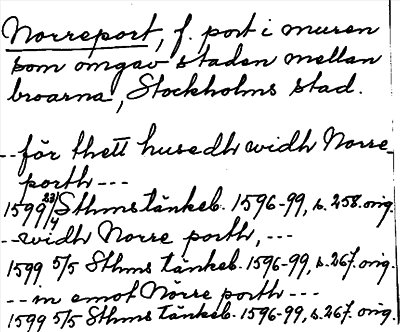 Norreport, f. port i muren
som omgav staden mellan
broarna, Stockholms stad.
--för thett husedh widh Norre-
porth---
1599 23/4 Sthms tänkeb. 1596-99, s. 258. orig.
--widh Norre porth,---
1599 5/5 Sthms tänkeb. 1596-99, s. 267. orig.
--in emot Nörre porth---
1599 5/5 Sthms tänkeb. 1596-99, s. 267. orig.